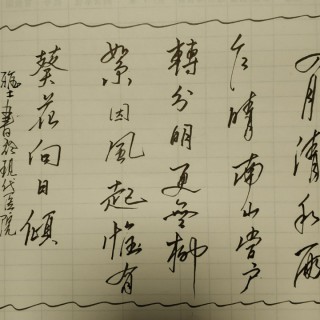 四月清和雨
乍晴南山當户
轉分明更無柳
絮因風起惟有
葵花向日傾
雅士書於現代医院